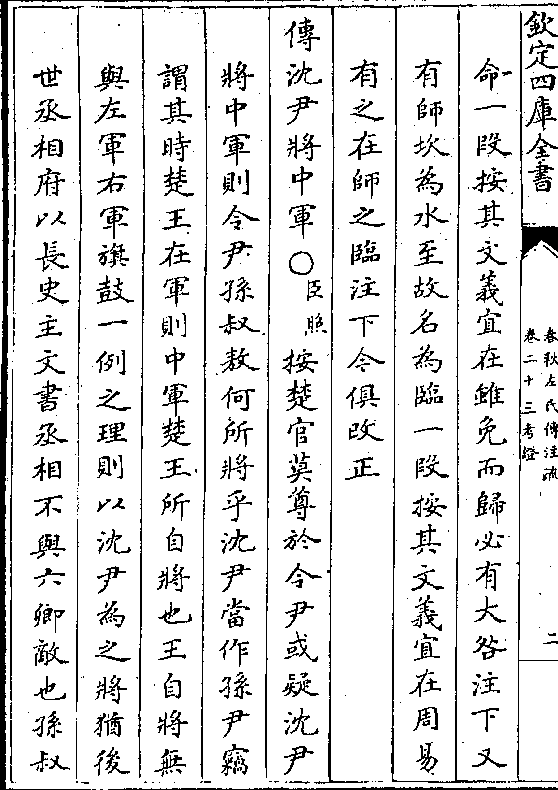 欽定四庫全書
春秋左氏傳注疏
卷二十三考證
二
命一段按其文義宜在雖免而歸必有大咎注下又
有師坎為水至故名為臨一段按其文義宜在周易
有之在師之臨注下今俱改正
傳沈尹將中軍○臣照按楚官莫尊於令尹或疑沈尹
將中軍則令尹孫叔敖何所將乎沈尹當作孫尹竊
謂其時楚王在軍則中軍楚王所自將也王自將無
與左軍右軍旗鼓一例之理則以沈尹為之將猶後
世丞相府以長史主文書丞相不與六卿敵也孫叔